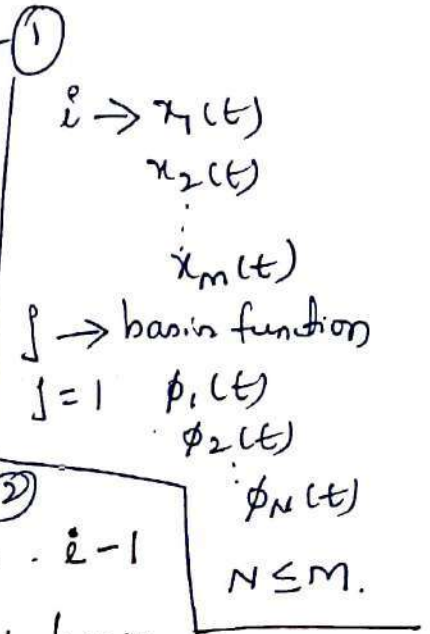 ①
i → x₁(t)
x₂(t)
⋮
xₘ(t)
j → basis function
j = 1 φ₁(t)
φ₂(t)
⋮
φ_N(t)
②
. i-1
N ≤ M.